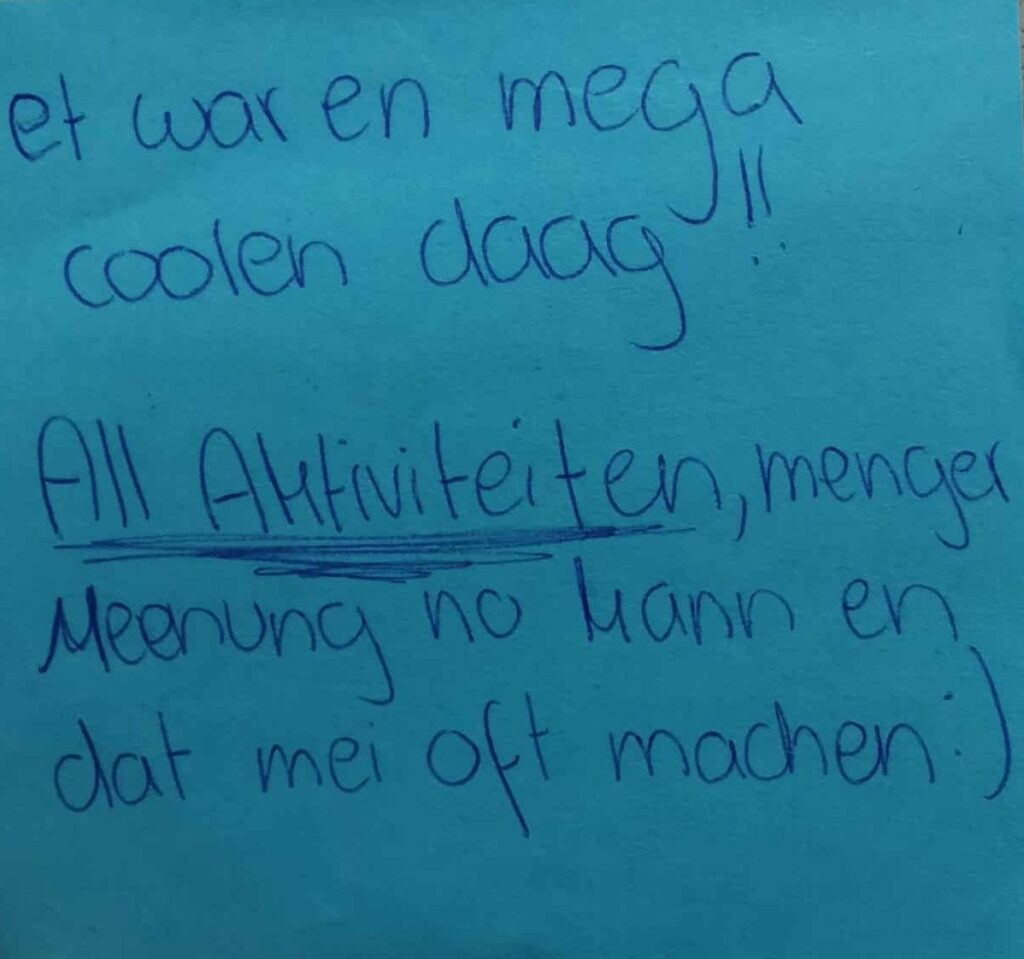 et war en mega
coolen daag!!
All Aktiviteiten, menger
Meenung no kann en
dat mei oft machen :)